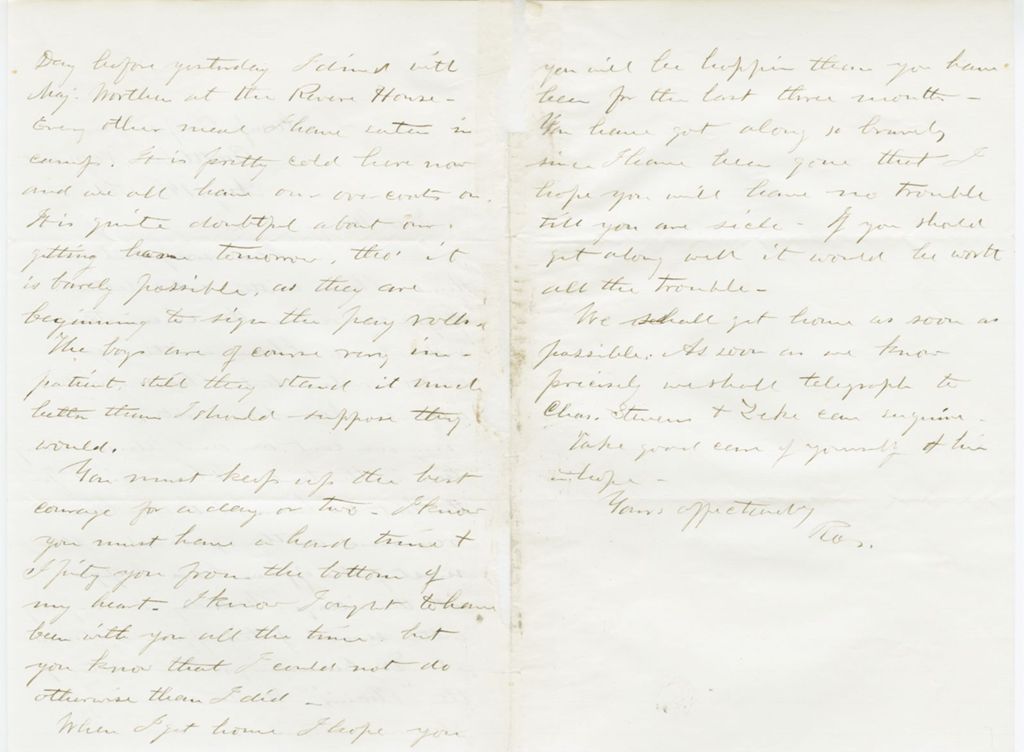 Day before yesterday I dined with
Maj. Worthen at the Revere House -
Every other meal I have eaten in
camp. It is pretty cold here now
and we all have our over-coats on.
It is quite doubtful about our
getting home tomorrow, tho' it
is barely possible, as they are
beginning to sign the pay rolls.
The boys are of course very im-
patient, still they stand it much
better than I should suppose they
would.
You must keep up the best
courage for a day or two - I know
you must have a hard time &
I pity you from the bottom of
my heart. I know I ought to have
been with you all the time but
you know that I could not do
otherwise than I did -
When I get home I hope you
you will be happier than you have
been for the last three months -
You have got along so bravely
since I have been gone that I
hope you will have no trouble
till you are sick - If you should
get along well it would be worth
all the trouble -
We shall get home as soon as
possible. As soon as we know
precisely we shall telegraph to
Chas. Stevens & Zeke can inquire.
Take good care of yourself & live
in hope -
Yours affectionately
Ros.